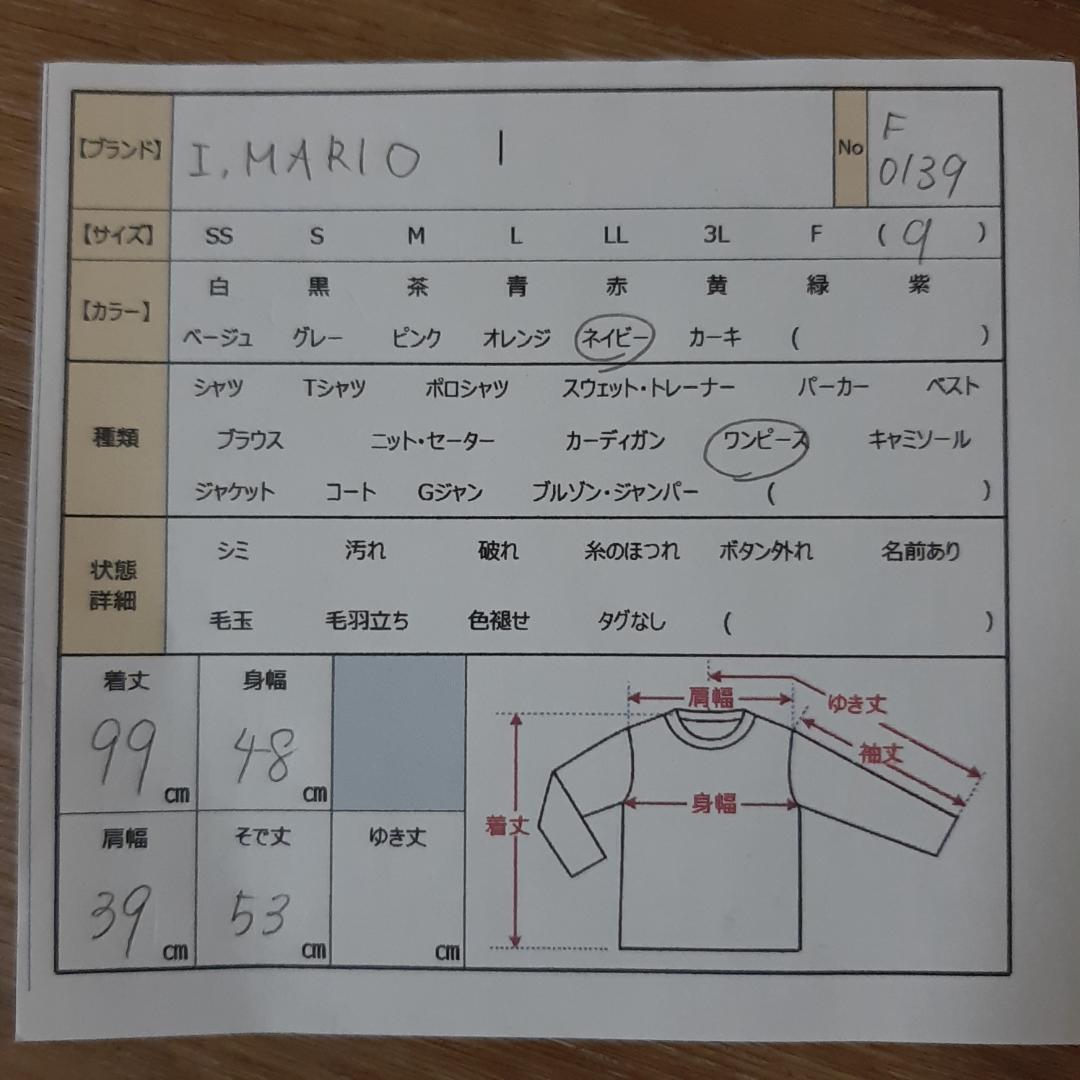 【ブランド】 I.MARIO | No F 0139
【サイズ】 SS S M L LL 3L F ( 9 )
【カラー】 白 黒 茶 青 赤 黄 緑 紫
ベージュ グレー ピンク オレンジ ネイビー カーキ ( )
種類 シャツ Tシャツ ポロシャツ スウェット・トレーナー パーカー ベスト
ブラウス ニット・セーター カーディガン ワンピース キャミソール
ジャケット コート Gジャン ブルゾン・ジャンパー ( )
状態詳細 シミ 汚れ 破れ 糸のほつれ ボタン外れ 名前あり
毛玉 毛羽立ち 色褪せ タグなし ( )
着丈 身幅
99 cm 48 cm
肩幅 そで丈 ゆき丈
39 cm 53 cm cm
肩幅 ゆき丈
袖丈
身幅
着丈